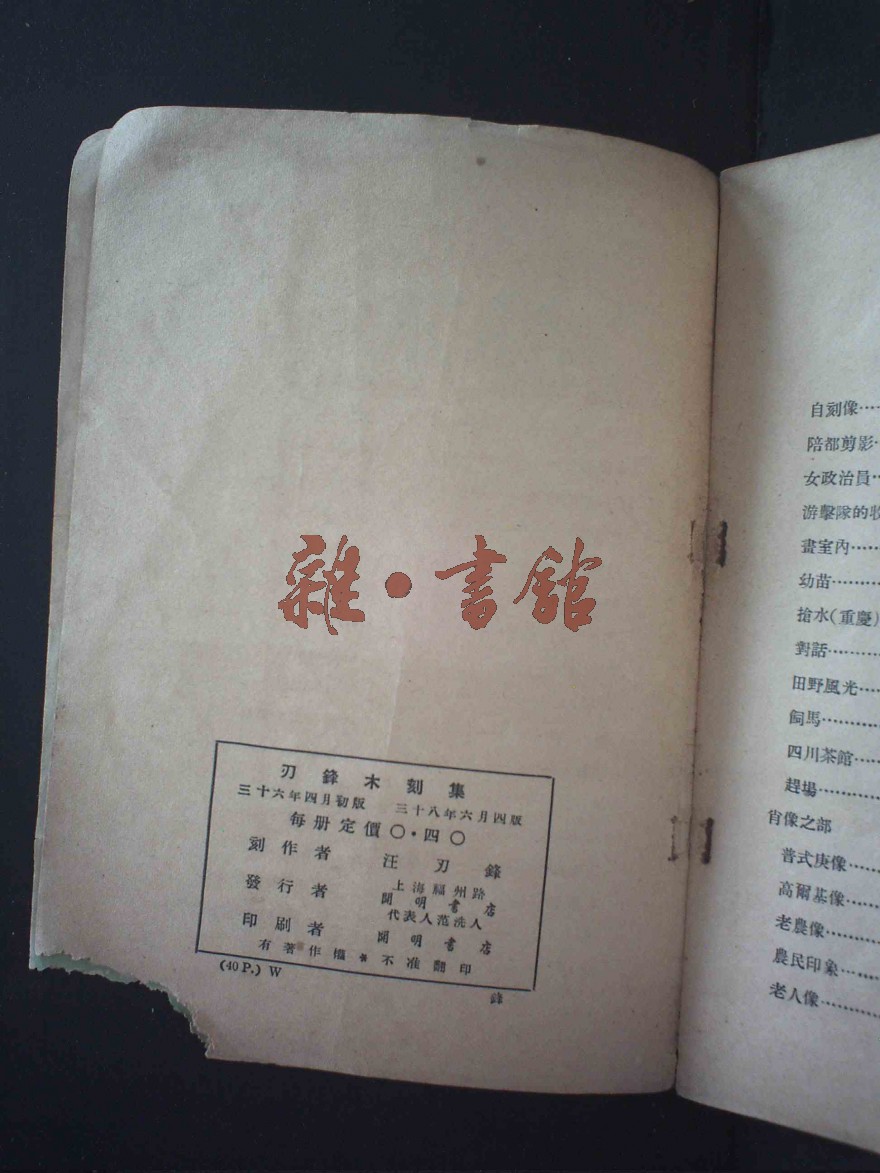 雜・書館
刃鋒木刻集
三十六年四月初版 三十八年六月四版
每册定價〇・四〇
刻作者 汪刃鋒
發行者 上海福州路
開明書店
代表人范洗人
印刷者 開明書店
有著作權＊不准翻印
(40 P.) W
鋒
自刻像……
陪都剪影…
女政治員…
游擊隊的收
畫室內……
幼苗………
搶水(重慶)
對話………
田野風光…
飼馬………
四川茶館…
趕場………
肖像之部
普式庚像…
高爾基像…
老農像……
農民印象…
老人像……